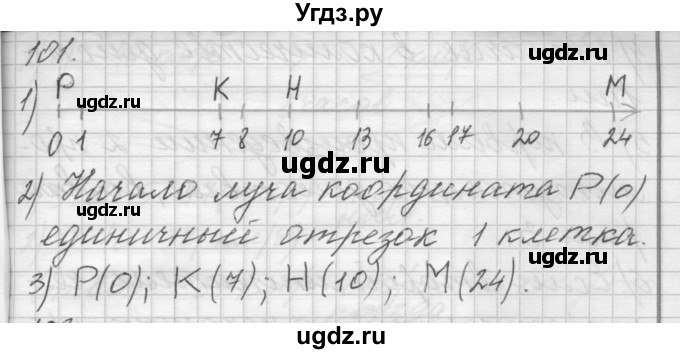 Угдз.ру
101.
1) P K H M
0 1 7 8 10 13 16 17 20 24
2) Начало луча координата P(0)
единичный отрезок 1 клетка.
3) P(0); K(7); H(10); M(24).
ugdz.ru
ugdz.ru
ugdz.ru
ugdz.ru
ugdz.ru
ugdz.ru
ugdz.ru
ugdz.ru